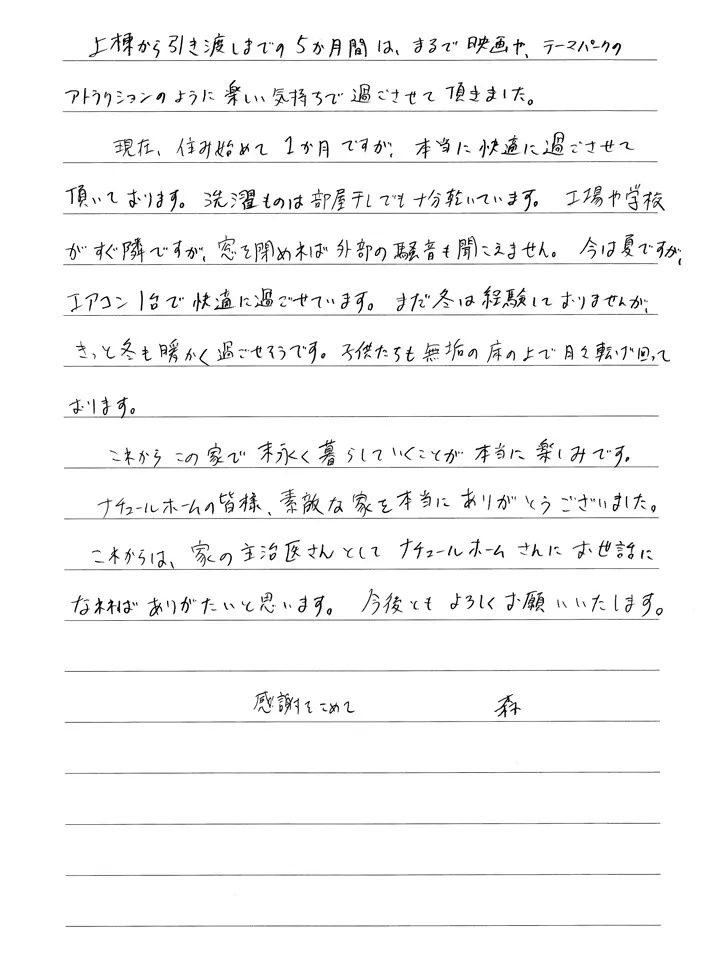 上棟から引き渡しまでの5か月間は、まるで映画や、テーマパークの
アトラクションのように楽しい気持ちで過ごさせて頂きました。
現在、住み始めて1か月ですが、本当に快適に過ごさせて
頂いております。洗濯ものは部屋干しでも十分乾いています。工場や学校
がすぐ隣ですが、窓を閉めれば外部の騒音も聞こえません。今は夏ですが、
エアコン1台で快適に過ごせています。まだ冬は経験しておりませんが、
きっと冬も暖かく過ごせそうです。子供たちも無垢の床の上で日々転げ回って
おります。
これからこの家で末永く暮らしていくことが本当に楽しみです。
ナチュールホームの皆様、素敵な家を本当にありがとうございました。
これからは、家の主治医さんとしてナチュールホームさんにお世話に
なればありがたいと思います。今後ともよろしくお願いいたします。
感謝をこめて 森